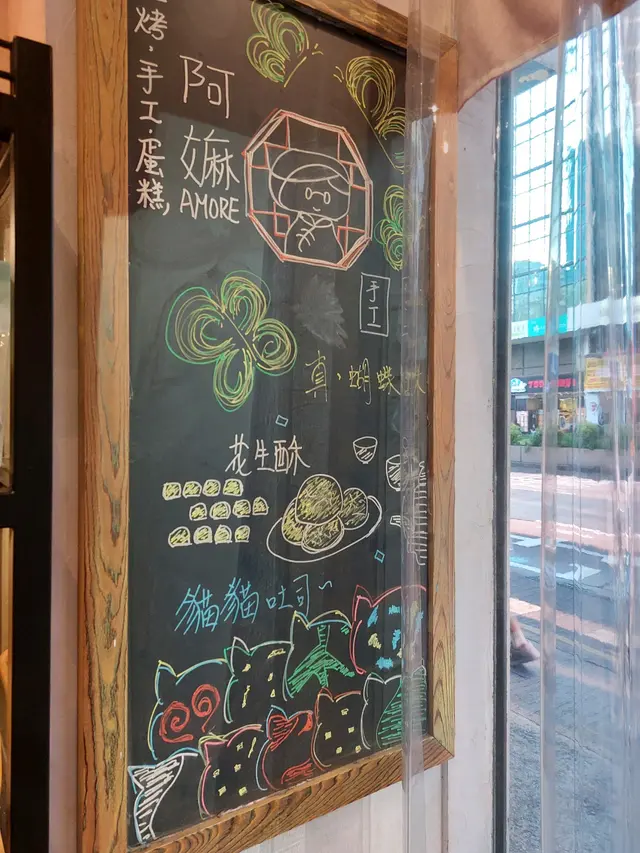 烤·手工·蛋糕,
阿嫲
AMORE
手工
真·蝴蝶
花生酥
貓貓吐司~